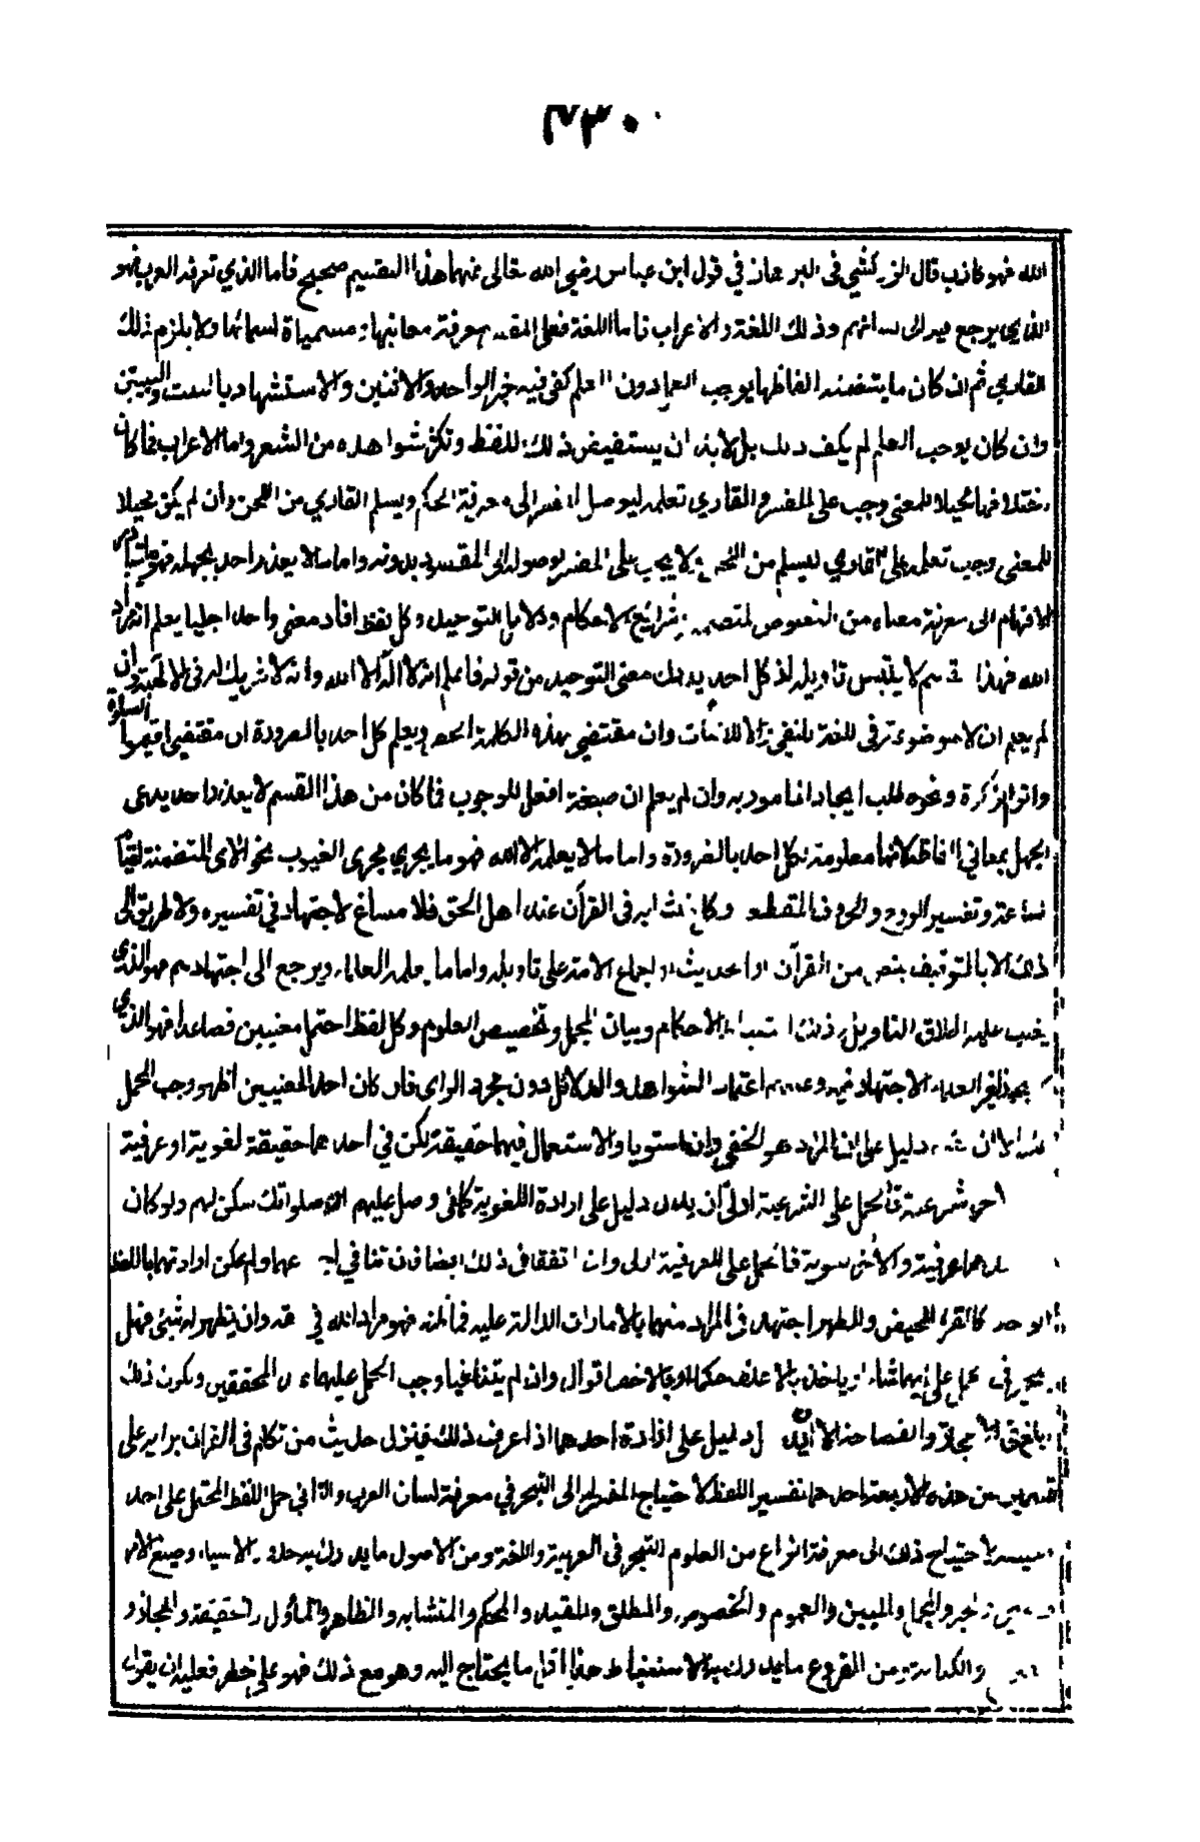 ٧٣٠
الله فهو كاذب قال الزركشي في البرهان في قول ابن عباس رضي الله تعالى عنهما هذا التقسيم صحيح فاما الذي تعرفه العرب فهو
الذي يرجع فيه الى لسانهم وذلك اللغة والاعراب فاما اللغة فعلى المفسر معرفة معانيها ومسمياة اسمائها ولا يلزم ذلك
القاري ثم ان كان ما يتضمنه الفاظها يوجب العمل دون العلم كفى فيه خبر الواحد والاثنين والاستشهاد بالبيت والبيتين
وان كان يوجب العلم لم يكف ذلك بل لا بد ان يستفيض ذلك اللفظ وتكثر شواهده من الشعر واما الاعراب فما كان
اختلافها محيلا للمعنى وجب على المفسر والقاري تعلمه ليوصل المفسر الى معرفة الحكم ويسلم القاري من اللحن وان لم يكن محيلا
للمعنى وجب تعلمه على القاري ليسلم من اللحن ولا يجب على المفسر لوصوله الى المقصود بدونه واما ما لا يعذر احد بجهله فهو ما تتبادر
الافهام الى معرفة معناه من النصوص المتضمنة شرائع الاحكام ودلائل التوحيد وكل لفظ افاد معنى واحدا جليا يعلم انه مراد
الله فهذا القسم لا يلتبس تاويله اذ كل احد يدرك معنى التوحيد من قوله فاعلم انه لا اله الا الله وانه لا شريك له في الالهية وان
لم يعلم ان لا موضوعة في اللغة للنفي والا للاثبات وان مقتضى هذه الكلمة الحصر ويعلم كل احد بالضرورة ان مقتضى اقيموا الصلوة
واتوا الزكوة ونحوه طلب ايجاد المامور به وان لم يعلم ان صيغة افعل للوجوب فما كان من هذا القسم لا يعذر احد يدعى
الجهل بمعاني الفاظه لانها معلومة لكل احد بالضرورة واما ما لا يعلمه الا الله فهو ما يجري مجرى الغيوب نحو الاى المتضمنة لقيام
الساعة وتفسير الروح والحروف المقطعة وكل متشابه في القرآن عند اهل الحق فلا مساغ لاجتهاد في تفسيره ولا طريق الى
ذلك الا بالتوقيف بنص من القرآن او الحديث او اجماع الامة على تاويله واما ما يعلمه العلماء ويرجع الى اجتهادهم فهو الذي
يغلب عليه اطلاق التاويل وذلك استنباط الاحكام وبيان المجمل وتخصيص العلوم وكل لفظ احتمل معنيين فصاعدا فهو الذي
يجوز لغير العلماء الاجتهاد فيه وعليهم اعتماد الشواهد والدلائل دون مجرد الراى فان كان احد المعنيين اظهر وجب الحمل
عليه الا ان يقوم دليل على ان المراد هو الخفي وان استويا والاستعمال فيهما حقيقة لكن في احدهما حقيقة لغوية او عرفية
اخرى شرعية فالحمل على الشرعية اولى الا ان يدل دليل على ارادة اللغوية كما في وصل عليهم ان صلواتك سكن لهم ولو كان
احدهما عرفية والاخرى لغوية فالحمل على العرفية اولى وان اتفقا في ذلك ايضا فان تنافي اجتماعهما ولم يمكن ارادتهما باللفظ
الواحد كالقرء للحيض والطهر اجتهد في المراد منهما بالامارات الدالة عليه فما ظنه فهو مراد الله في حقه وان لم يظهر له شيئ فهل
يتخير في الحمل على ايهما شاء او ياخذ بالاغلظ حكما او بالاخف اقوال وان لم يتنافيا وجب الحمل عليهما عند المحققين ويكون ذلك
ابلغ في الاعجاز والفصاحة الا ان دل دليل على ارادة احدهما اذا عرف ذلك فينزل حديث من تكلم في القران برايه على
قسمين من هذه الاربعة احدهما تفسير اللفظ لاحتياج المفسر له الى التبحر في معرفة لسان العرب والثاني حمل اللفظ المحتمل على احد
معنييه لاحتياج ذلك الى معرفة انواع من العلوم التبحر في العربية واللغة ومن الاصول ما يدرك به حدود الاشياء وصيغ الامر
والنهي والخبر والمجمل والمبين والعموم والخصوص والمطلق والمقيد والمحكم والمتشابه والظاهر والمأول والحقيقة والمجاز و
والكناية ومن الفروع ما يدرك به الاستنباط هذا اقل ما يحتاج اليه وهو مع ذلك فهو على خطر فعليه ان يقول